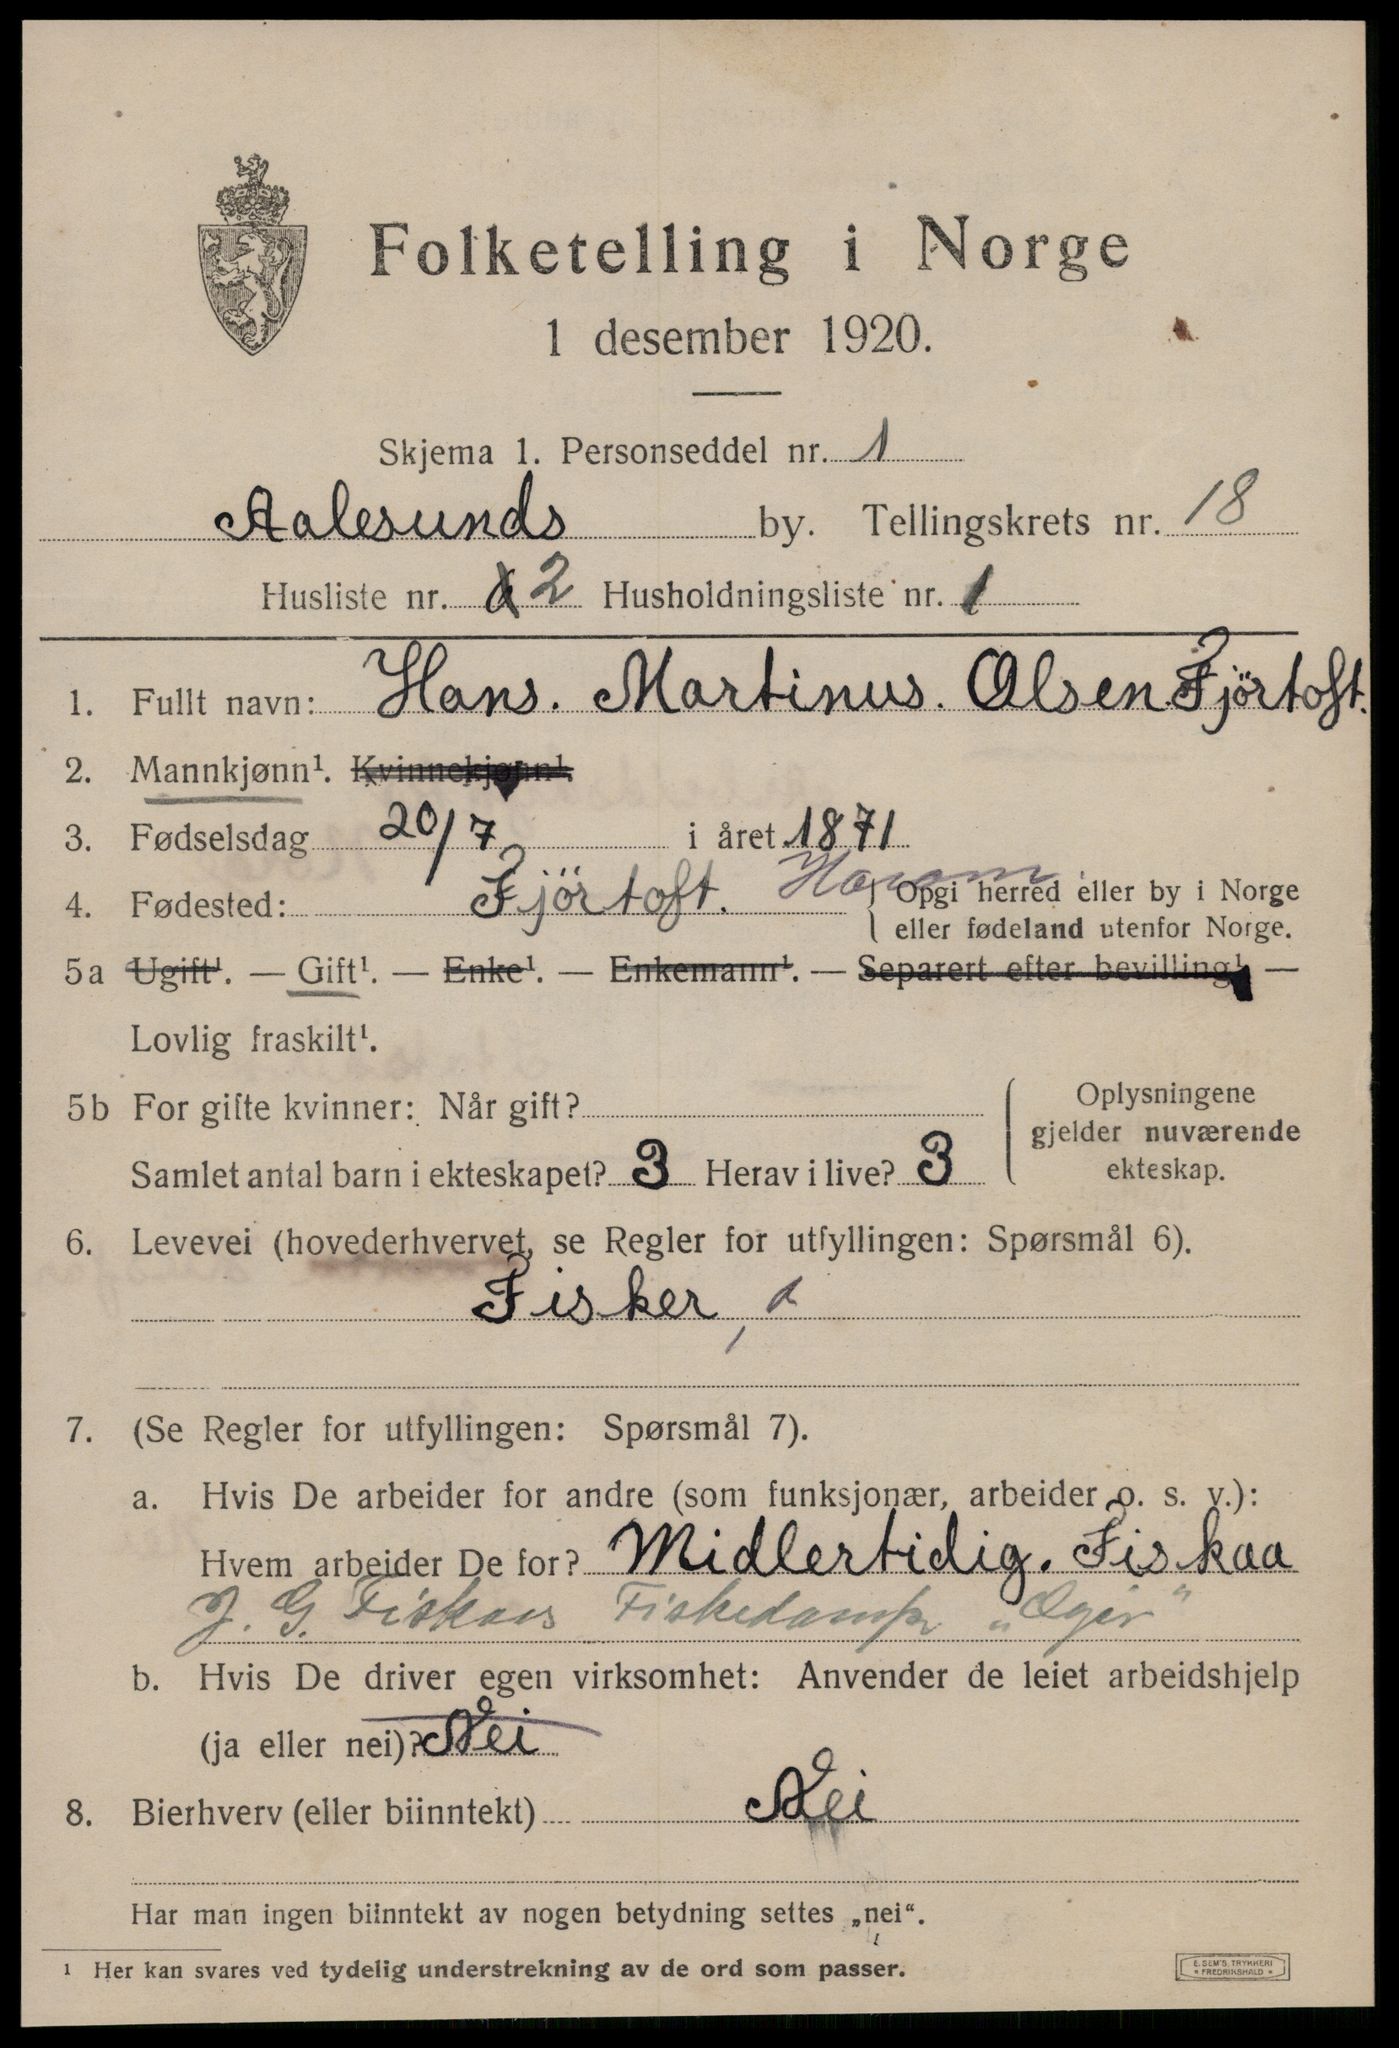 Folketelling i Norge
1 desember 1920.
Skjema 1. Personseddel nr. 1
Aalesunds by. Tellingskrets nr. 18
Husliste nr. 2 Husholdningsliste nr. 1
1. Fullt navn: Hans. Martinus. Olsen Fjörtoft.
2. Mannkjønn¹. Kvinnekjønn¹.
3. Fødselsdag 20/7 i året 1871
4. Fødested: Fjörtoft. Haram { Opgi herred eller by i Norge
eller fødeland utenfor Norge.
5a Ugift¹. — Gift¹. — Enke¹. — Enkemann¹. — Separert efter bevilling¹. —
Lovlig fraskilt¹.
5b For gifte kvinner: Når gift?
Samlet antal barn i ekteskapet? 3 Herav i live? 3
Oplysningene
gjelder nuværende
ekteskap.
6. Levevei (hovederhvervet, se Regler for utfyllingen: Spørsmål 6).
Fisker, a
7. (Se Regler for utfyllingen: Spørsmål 7).
a. Hvis De arbeider for andre (som funksjonær, arbeider o. s. v.):
Hvem arbeider De for? Midlertidig. Fiskaa
J. G. Fiskaas Fiskedamp „Ægir"
b. Hvis De driver egen virksomhet: Anvender de leiet arbeidshjelp
(ja eller nei)? Nei
8. Bierhverv (eller biinntekt) Nei
Har man ingen biinntekt av nogen betydning settes „nei“.
¹ Her kan svares ved tydelig understrekning av de ord som passer.
E. SEM'S TRYKKERI
* FREDRIKSHALD *